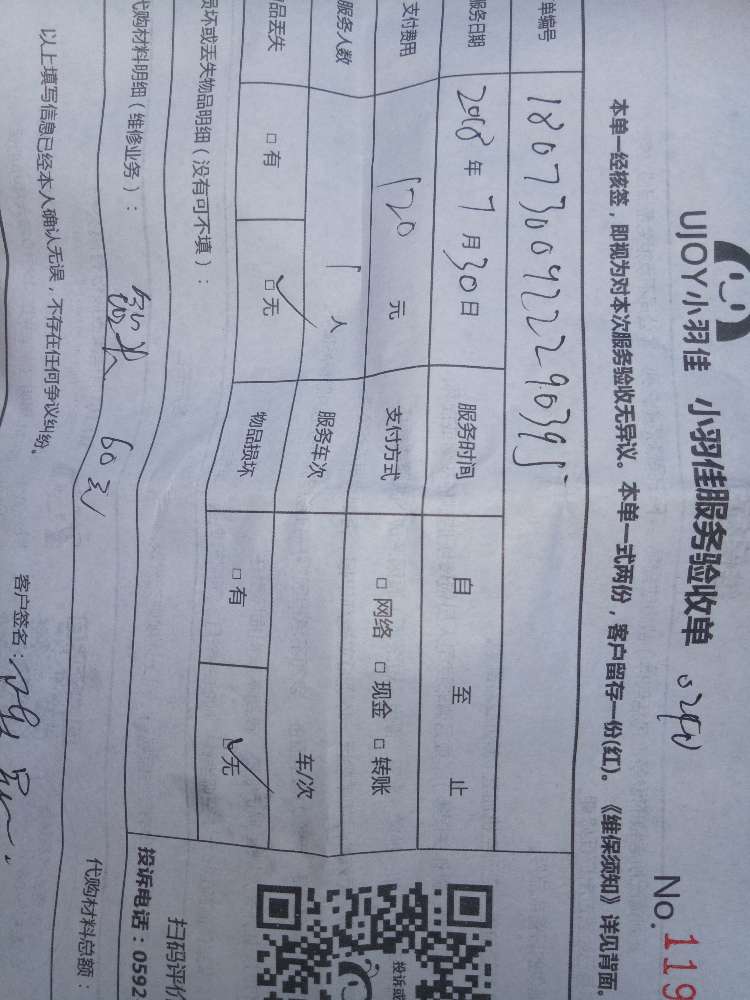 UJOY小羽佳 小羽佳服务验收单
No.119
本单一经核签，即视为对本次服务验收无异议。本单一式两份，客户留存一份(红)。《维保须知》详见背面。
单编号 1807300922290395
服务日期 2018年7月30日 服务时间 自 至 止
支付费用 120元 支付方式 □网络 □现金 □转账
服务人数 1人 服务车次 车/次
品丢失 □有 □无 物品损坏 □有 □无
损坏或丢失物品明细（没有可不填）：
代购材料明细（维修业务）： 60元
代购材料总额：
以上填写信息已经本人确认无误，不存在任何争议纠纷。
客户签名：
投诉或
扫码评价
投诉电话：0592